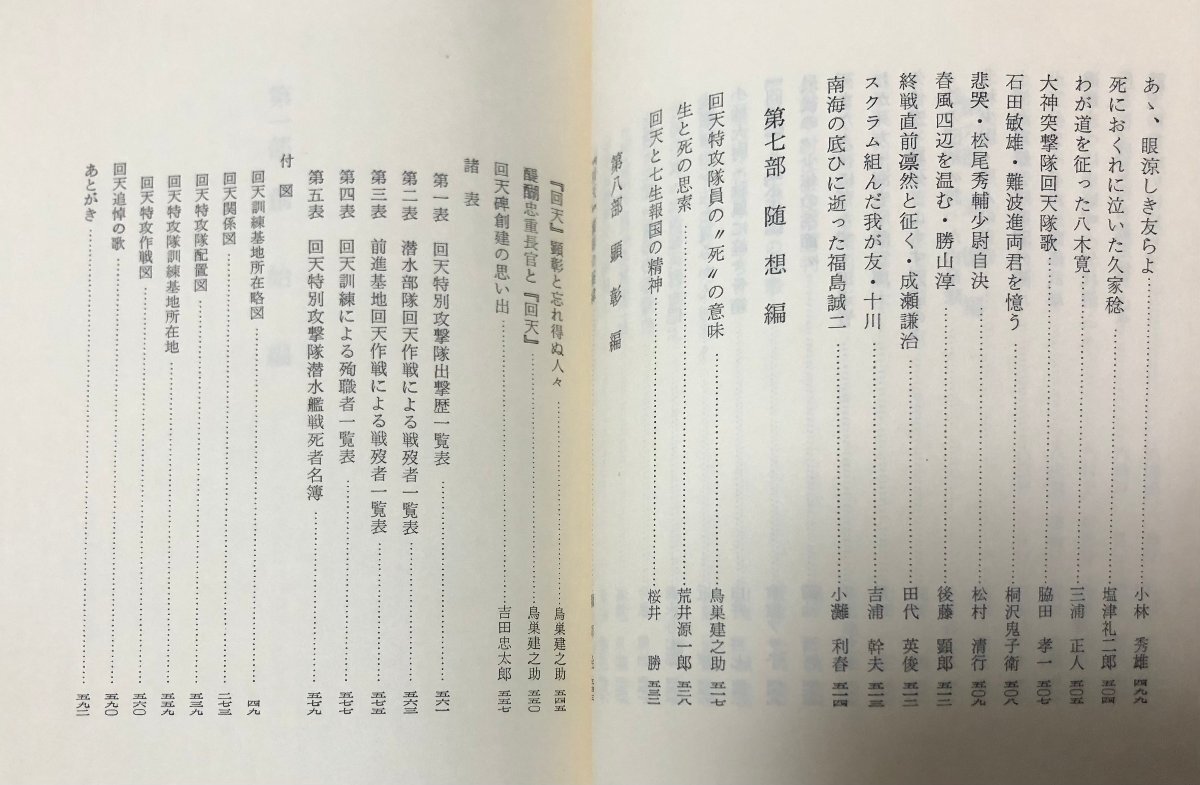 あゝ、眼涼しき友らよ……小林 秀雄 四九九
死におくれに泣いた久家稔……塩津礼二郎 五〇四
わが道を征った八木寛……三浦 正人 五〇五
大神突撃隊回天隊歌……脇田 孝一 五〇七
石田敏雄・難波進両君を憶う……桐沢鬼子衛 五〇八
悲哭・松尾秀輔少尉自決……松村 清行 五〇九
春風四辺を温む・勝山淳……後藤 顕郎 五一二
終戦直前凛然と征く・成瀬謙治……田代 英俊 五一二
スクラム組んだ我が友・十川……吉浦 幹夫 五一三
南海の底ひに逝った福島誠二……小灘 利春 五一四
第七部 随想編
回天特攻隊員の〝死〟の意味……鳥巣建之助 五一七
生と死の思索……荒井源一郎 五二八
回天と七生報国の精神……桜井 勝 五三二
第八部 顕彰編
『回天』顕彰と忘れ得ぬ人々……鳥巣建之助 五四五
醍醐忠重長官と『回天』……鳥巣建之助 五五〇
回天碑創建の思い出……吉田忠太郎 五五七
諸表
第一表 回天特別攻撃隊出撃歴一覧表……五六一
第二表 潜水部隊回天作戦による戦歿者一覧表……五六三
第三表 前進基地回天作戦による戦歿者一覧表……五七五
第四表 回天訓練による殉職者一覧表……五七七
第五表 回天特別攻撃隊潜水艦戦死者名簿……五七九
付図
回天訓練基地所在略図……四九
回天関係図……二七三
回天特攻隊配置図……五三九
回天特攻隊訓練基地所在地……五五九
回天特攻作戦図……五六〇
回天追悼の歌……五九〇
あとがき……五九二